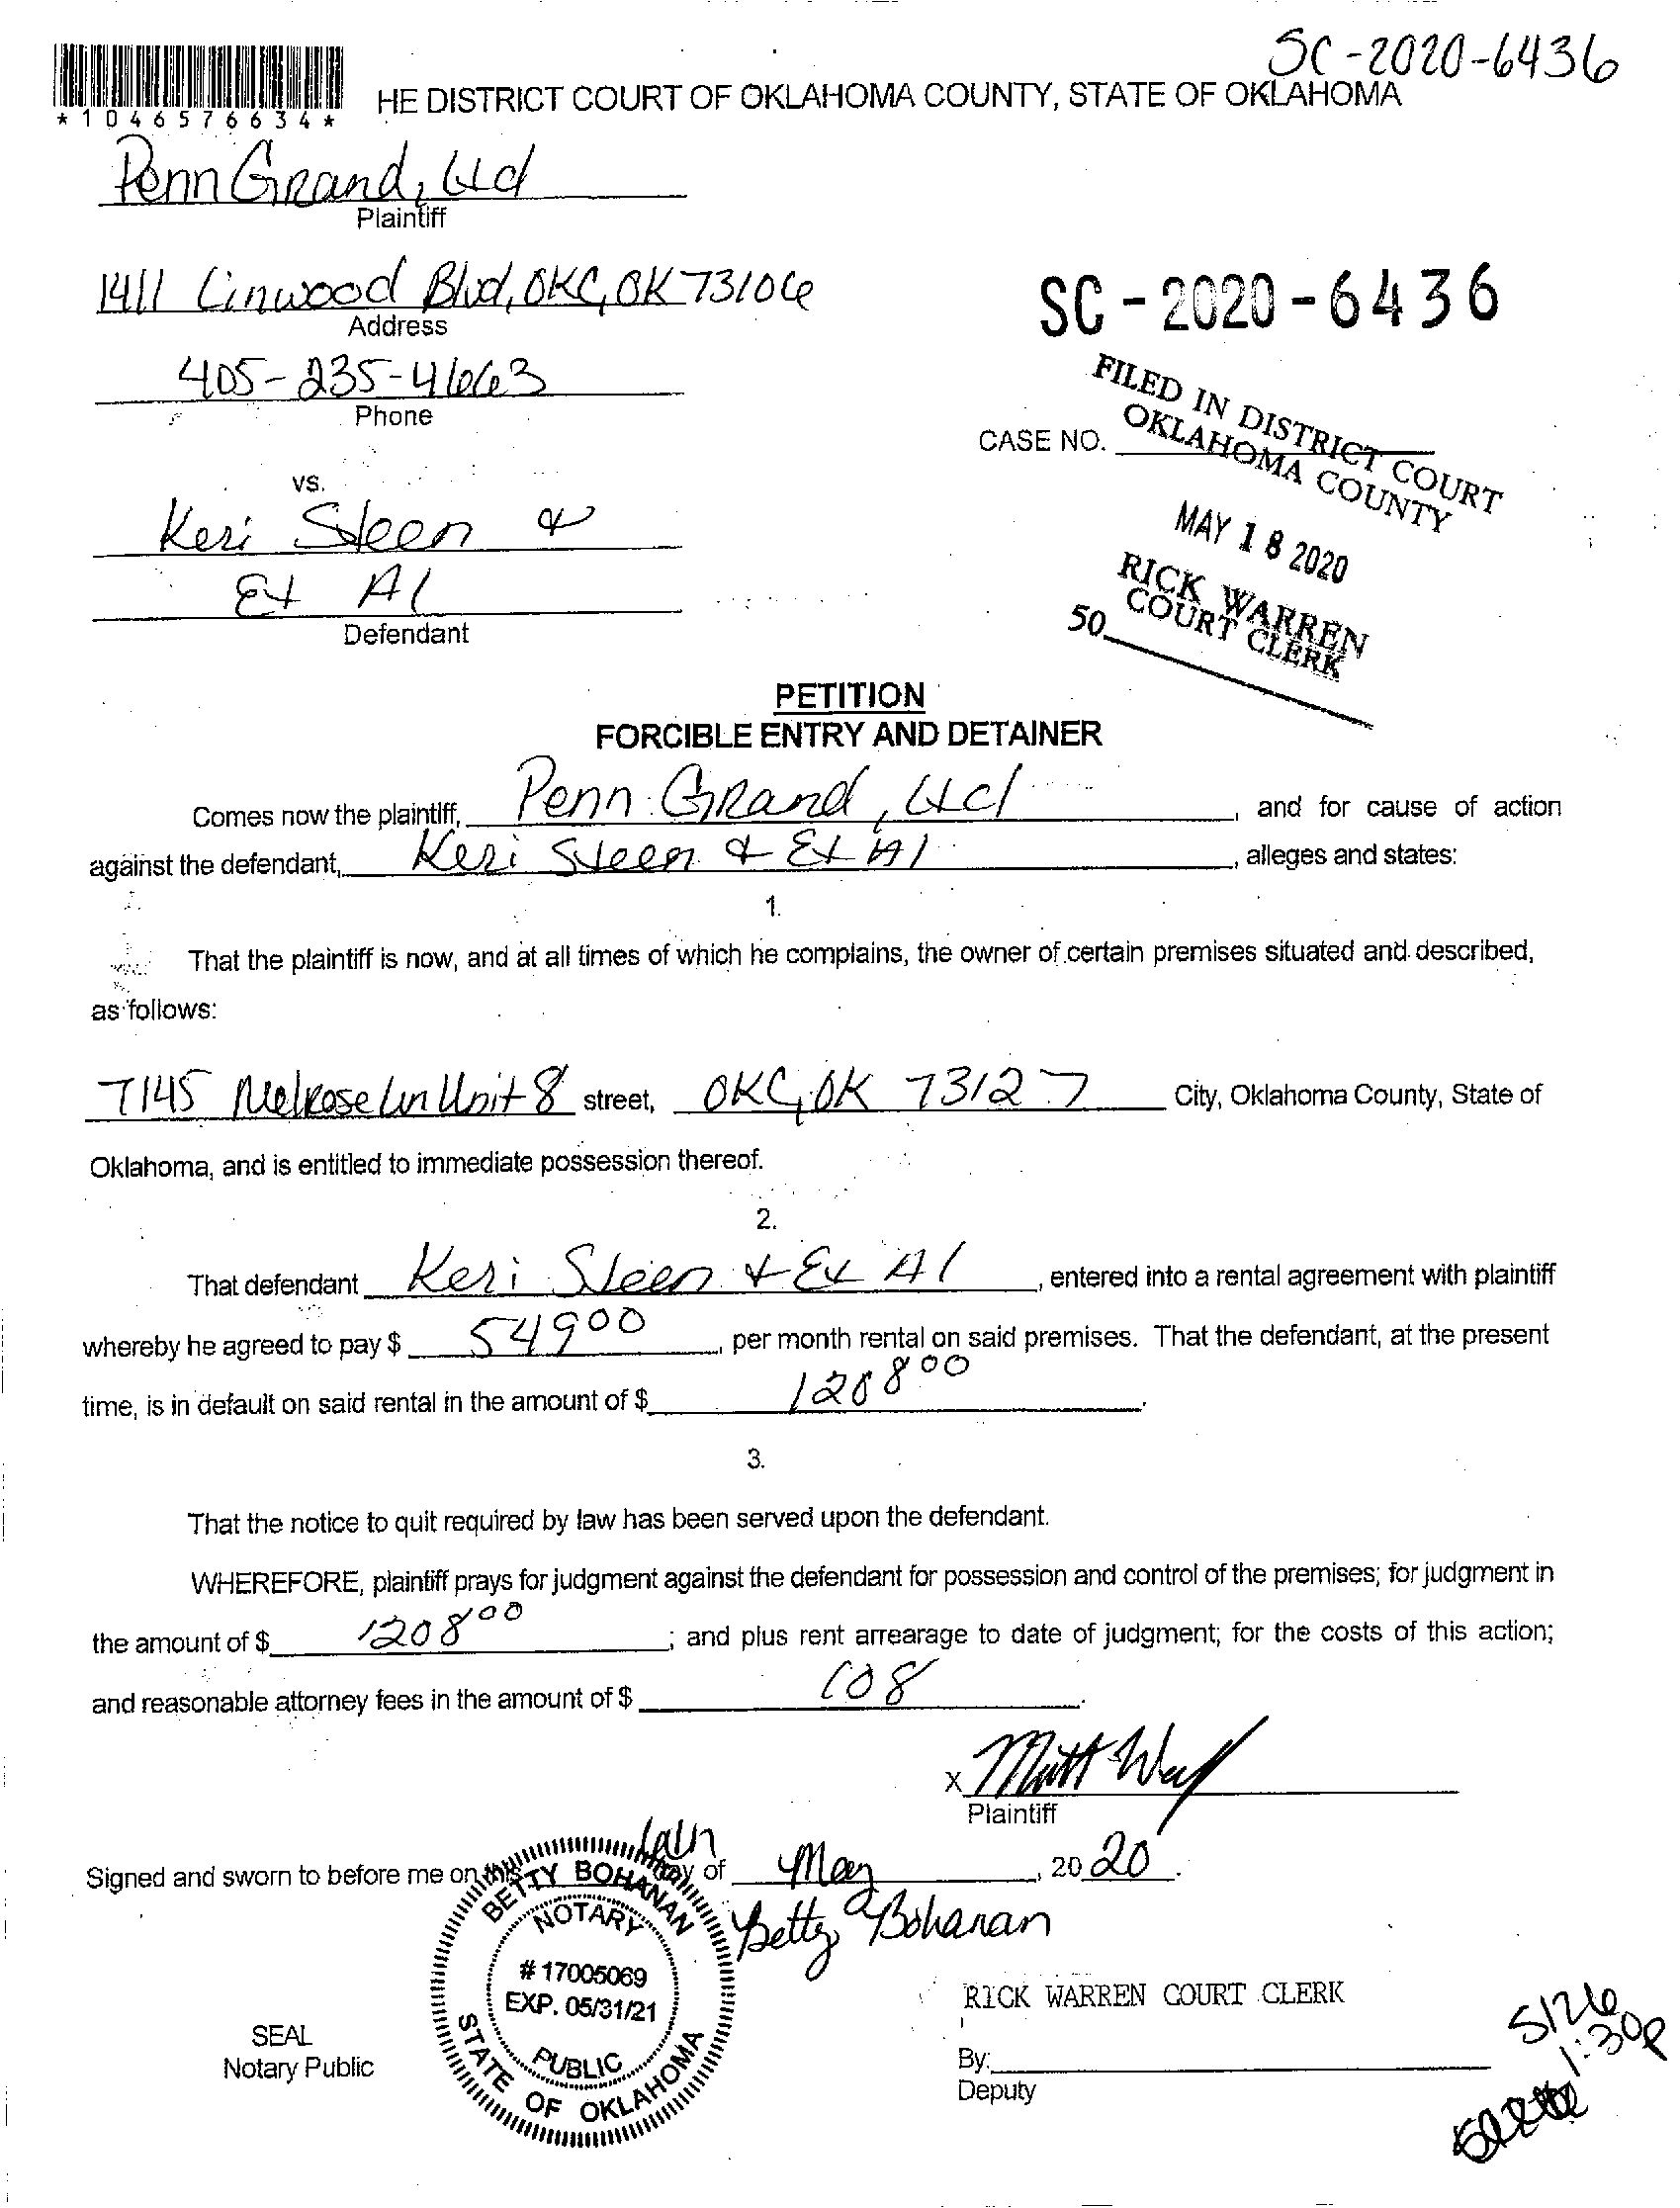 SC-2020-6436
*1046576634*
HE DISTRICT COURT OF OKLAHOMA COUNTY, STATE OF OKLAHOMA
Penn Grand, Ltd
Plaintiff
1411 Linwood Blvd, OKC, OK 73106
Address
SC-2020-6436
405-235-4663
Phone
FILED IN DISTRICT COURT
OKLAHOMA COUNTY
CASE NO.
MAY 18 2020
RICK WARREN
COURT CLERK
50
vs.
Keri Steen &
Et Al
Defendant
PETITION
FORCIBLE ENTRY AND DETAINER
Comes now the plaintiff, Penn Grand, Ltd, and for cause of action
against the defendant, Keri Steen & Et Al, alleges and states:
1.
That the plaintiff is now, and at all times of which he complains, the owner of certain premises situated and described,
as follows:
7145 Melrose Ln Unit 8 street, OKC, OK 73127 City, Oklahoma County, State of
Oklahoma, and is entitled to immediate possession thereof.
2.
That defendant Keri Steen & Et Al, entered into a rental agreement with plaintiff
whereby he agreed to pay $ 549 00, per month rental on said premises. That the defendant, at the present
time, is in default on said rental in the amount of $ 1208 00.
3.
That the notice to quit required by law has been served upon the defendant.
WHEREFORE, plaintiff prays for judgment against the defendant for possession and control of the premises; for judgment in
the amount of $ 1208 00; and plus rent arrearage to date of judgment; for the costs of this action;
and reasonable attorney fees in the amount of $ 108.
X Matt
Plaintiff
Signed and sworn to before me on this day of May, 2020.
Betty Bohanan
BETTY BOHANAN
NOTARY
# 17005069
EXP. 05/31/21
PUBLIC
STATE OF OKLAHOMA
SEAL
Notary Public
RICK WARREN COURT CLERK
By:
Deputy
5/26
1:30p